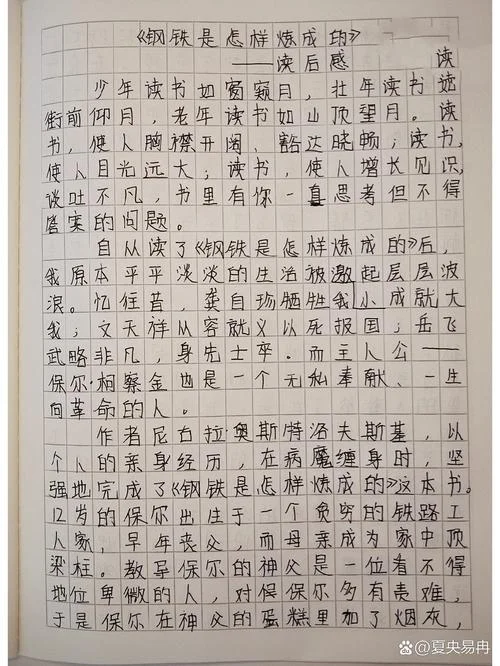 《钢铁是怎样炼成的》
——读后感 读
少年读书如窗窥月，壮年读书如
街前仰月，老年读书如山顶望月。读
书，使人胸襟开阔、豁达晓畅；读书，
使人目光远大；读书，使人增长见识，
谈吐不凡，书里有你一直思考但不得
答案的问题。
自从读了《钢铁是怎样炼成的》后，
我原本平平淡淡的生活被激起层层波
浪。忆往昔，龚自珍牺牲我小成就大
我；文天祥从容就义以死报国；岳飞
武略非凡，身先士卒。而主人公——
保尔·柯察金也是一个无私奉献、一生
向革命的人。
作者尼古拉·奥斯特洛夫斯基，以
个人的亲身经历，在病魔缠身时，坚
强地完成了《钢铁是怎样炼成的》这本书。
12岁的保尔出生于一个贫穷的铁路工
人家，早年丧父，而母亲成为家中顶
梁柱。教导保尔的神父是一位看不得
地位卑微的人，对候保尔多有责难，
于是保尔在神父的蛋糕里加了烟灰，
Bai百家号@夏央易冉